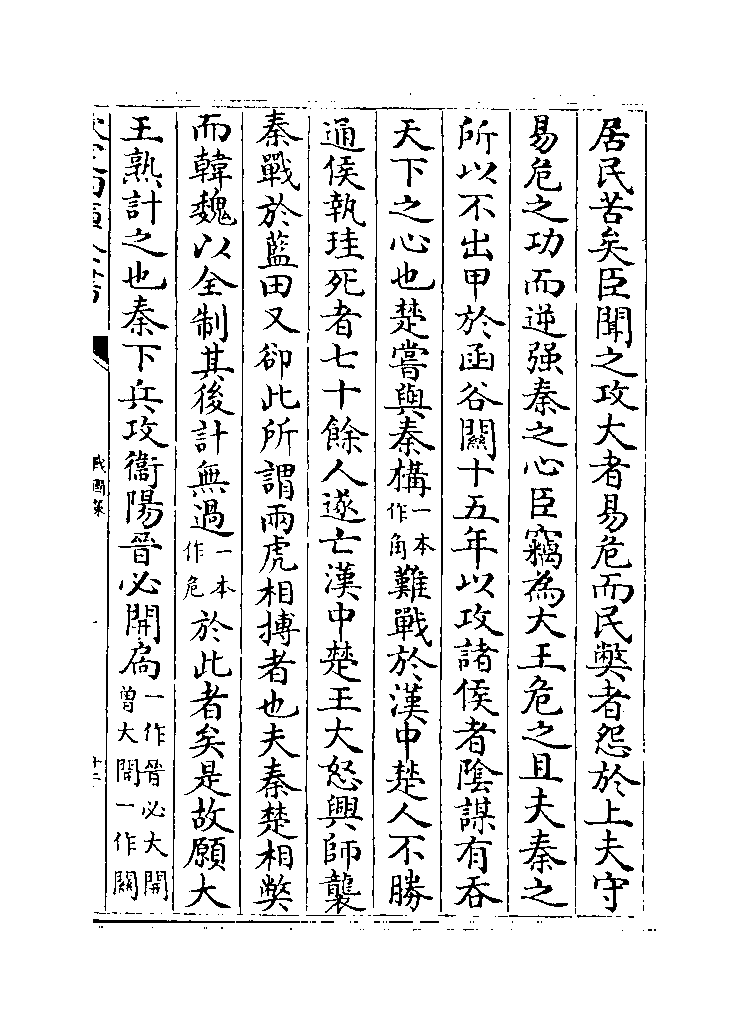 居民苦矣臣聞之攻大者易危而民弊者怨於上夫守
易危之功而逆强秦之心臣竊為大王危之且夫秦之
所以不出甲於函谷關十五年以攻諸侯者陰謀有吞
天下之心也楚嘗與秦構一本作角難戰於漢中楚人不勝
通侯執珪死者七十餘人遂亡漢中楚王大怒興師襲
秦戰於藍田又卻此所謂兩虎相搏者也夫秦楚相弊
而韓魏以全制其後計無過一本作危於此者矣是故願大
王熟計之也秦下兵攻衞陽晉必開扃一作晉必大開曾大關一作關
戰國策